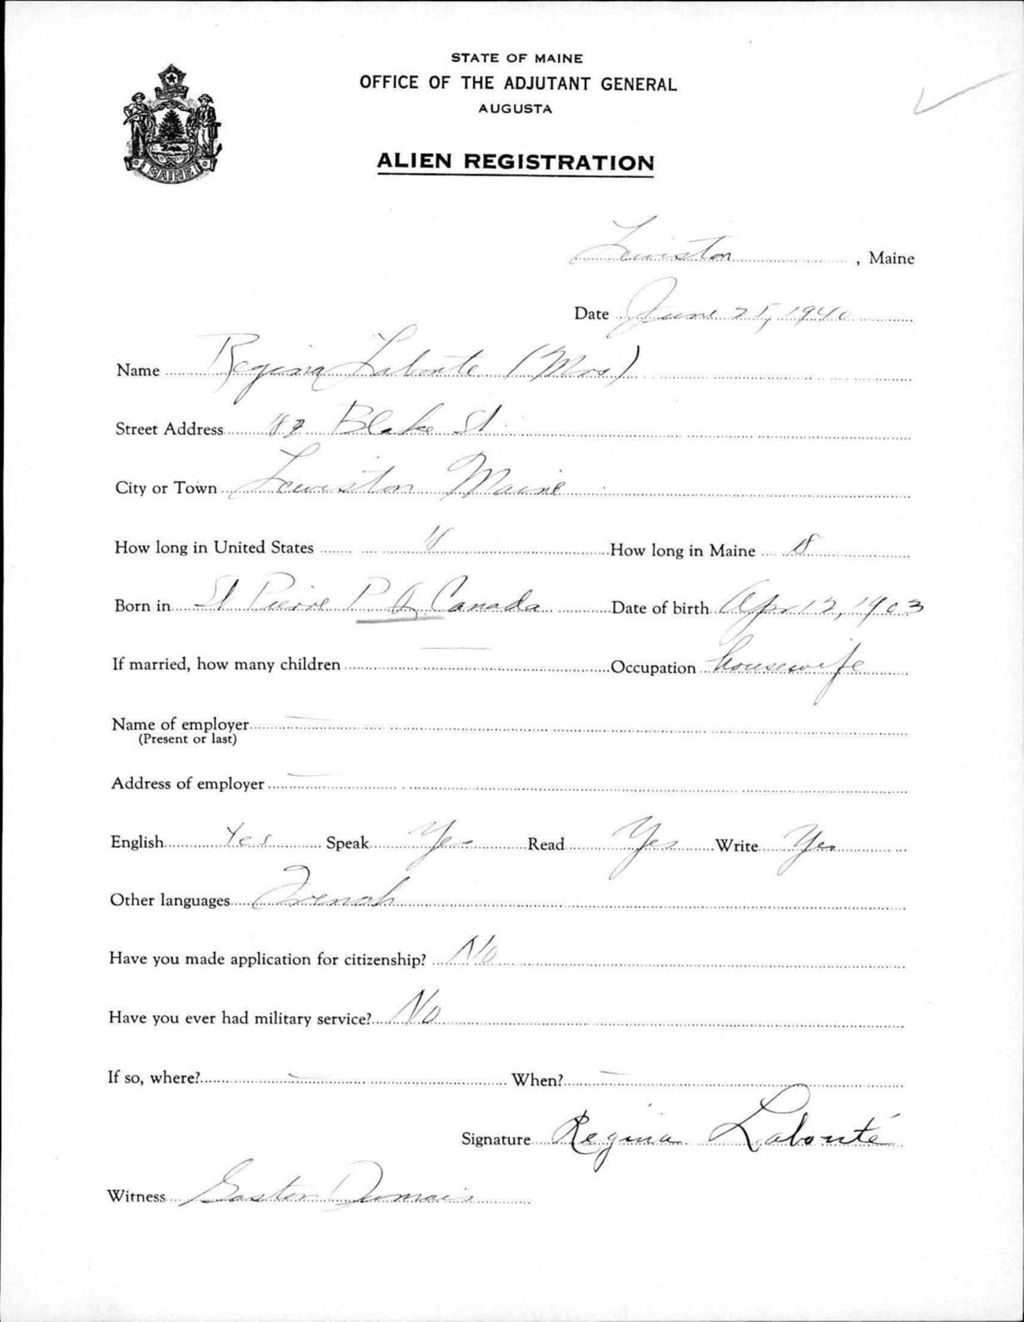 STATE OF MAINE
OFFICE OF THE ADJUTANT GENERAL
AUGUSTA
ALIEN REGISTRATION
MAINE
Lewiston, Maine
Date June 25, 1940
Name Regina Labonte (Mrs)
Street Address 87 Blake St.
City or Town Lewiston Maine
How long in United States How long in Maine 18
Born in St Pierre P Q Canada Date of birth Apr 12, 1903
If married, how many children — Occupation housewife
Name of employer —
(Present or last)
Address of employer —
English Yes Speak Yes Read Yes Write Yes
Other languages French
Have you made application for citizenship? No
Have you ever had military service? No
If so, where? — When? —
Signature Regina Labonté
Witness Gaston Dumais